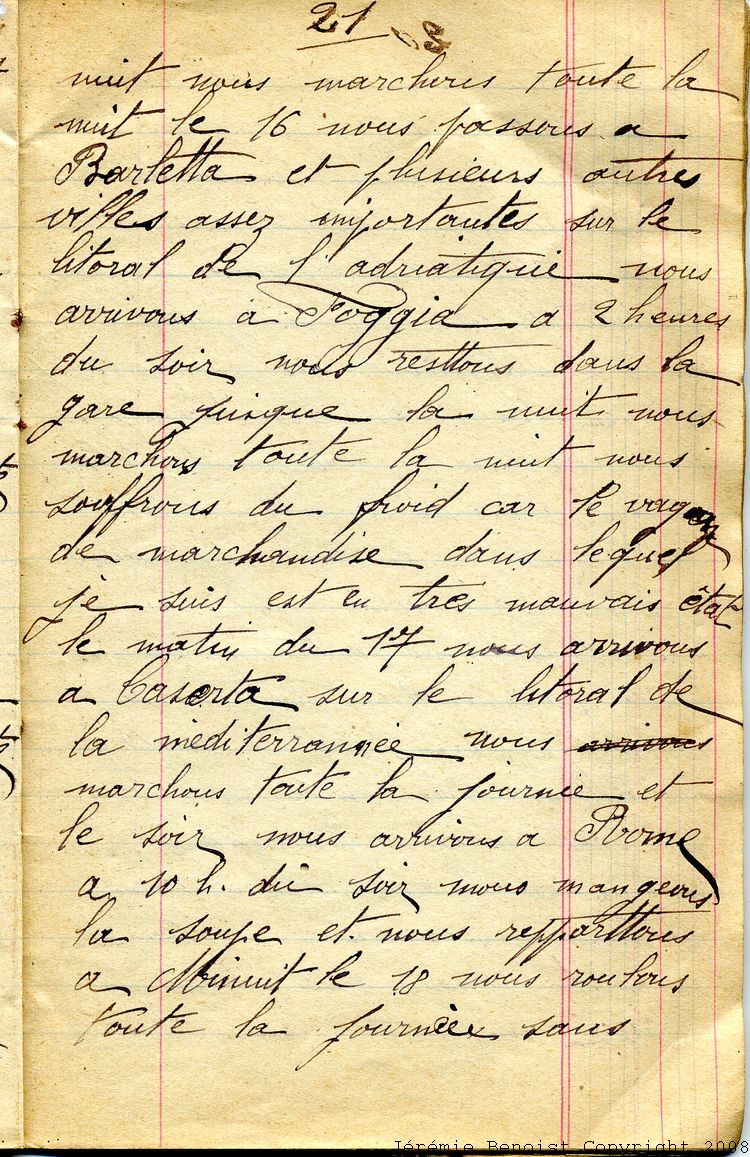 21
nuit nous marchons toute la
nuit le 16 nous passons a
Barletta et plusieurs autres
villes assez importantes sur le
litoral de l'adriatique nous
arrivons à Foggia a 2 heures
du soir nous resttons dans la
gare jusque la nuit nous
marchons toute la nuit nous
souffrons du froid car le vagon
de marchandise dans lequel
je suis est en très mauvais état
le matin du 17 nous arrivons
a Caserta sur le litoral de
la méditerrannée nous arrivons
marchons toute la journée et
le soir nous arrivons a Rome
a 10 h. du soir nous mangeons
la soupe et nous repparttons
a Minuit le 18 nous roulons
toute la journée sans
Jérémie Benoist Copyright 2008